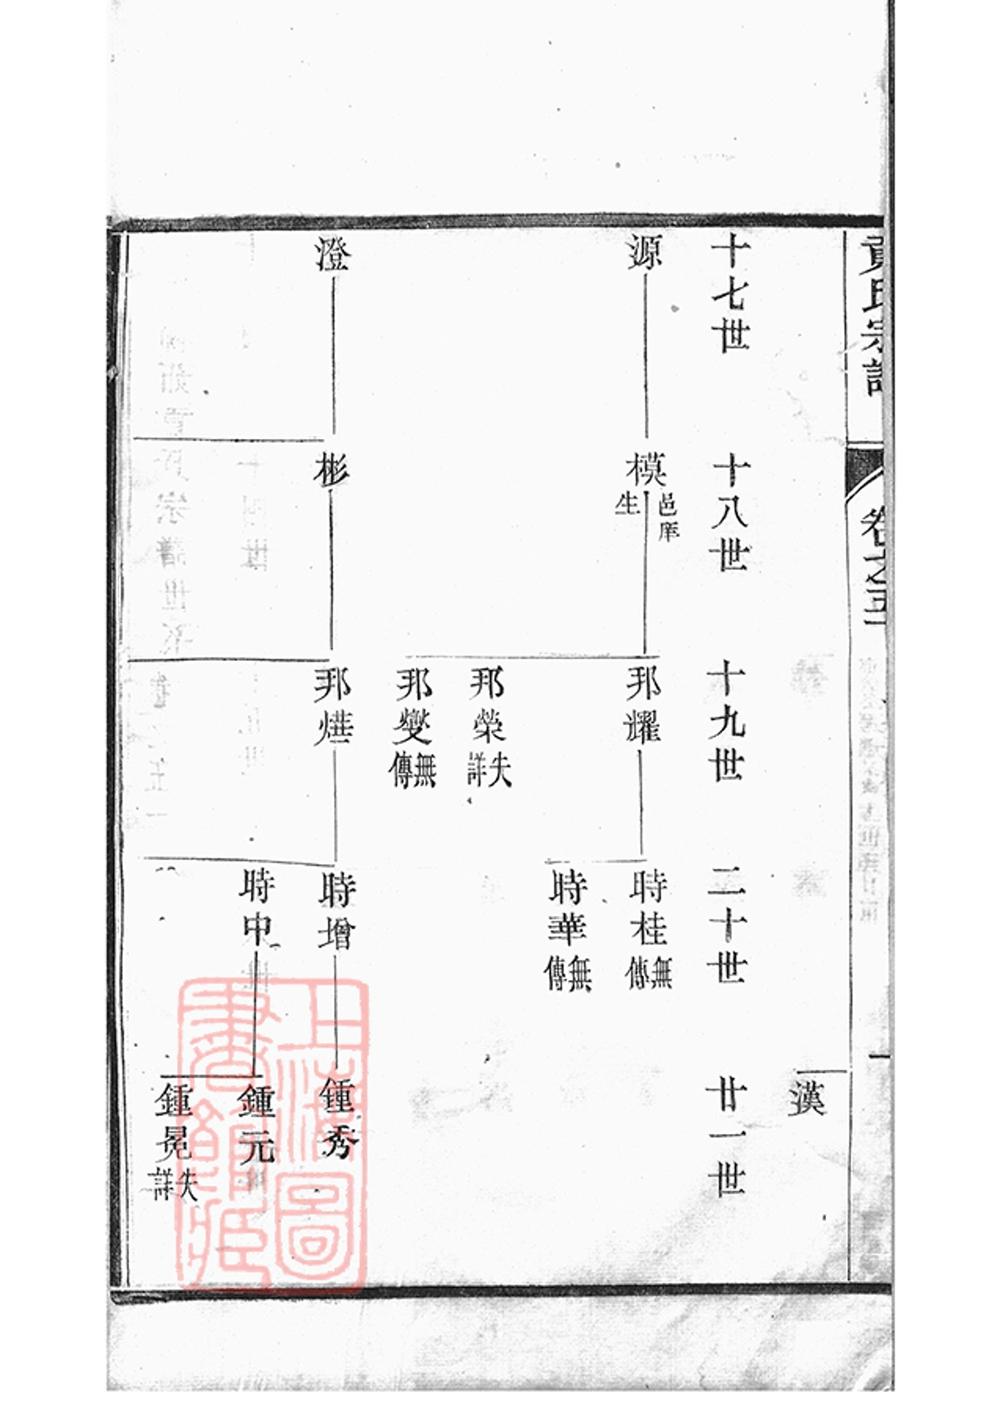 宗譜
卷之五
漢
十七世
十八世
十九世
二十世
廿一世
源
模 邑庠生
邦耀
時桂 無傳
時華 無傳
邦榮 失詳
邦燮 無傳
澄
彬
邦
時增
鍾秀
時中
鍾元
鍾冕 失詳
上海圖書館藏